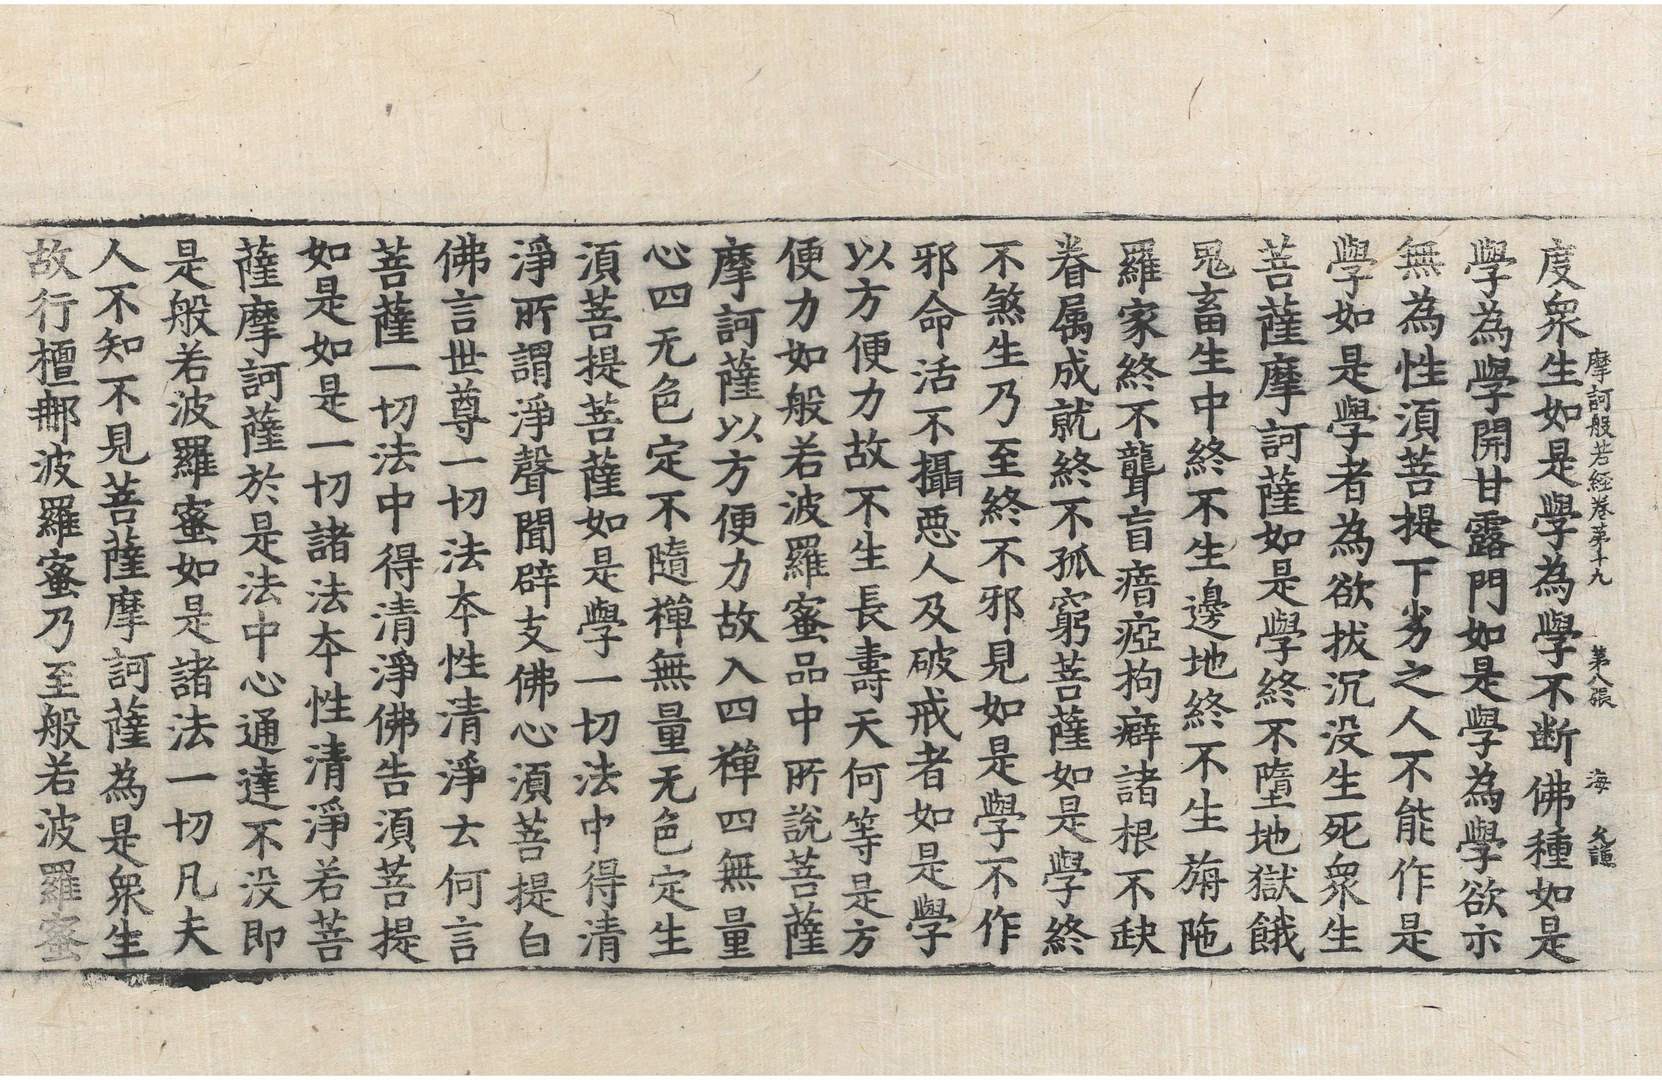 摩訶般若経巻第十九　第八張　海　允謹
度衆生如是學為學不断佛種如是
學為學開甘露門如是學為學欲示
無為性須菩提下劣之人不能作是
學如是學者為欲拔沉没生死衆生
菩薩摩訶薩如是學終不墮地獄餓
鬼畜生中終不生邊地終不生旃陁
羅家終不聾盲瘖瘂拘癖諸根不缺
眷属成就終不孤窮菩薩如是學終
不煞生乃至終不邪見如是學不作
邪命活不攝惡人及破戒者如是學
以方便力故不生長壽天何等是方
便力如般若波羅蜜品中所說菩薩
摩訶薩以方便力故入四禪四無量
心四无色定不隨禪無量无色定生
須菩提菩薩如是學一切法中得清
淨所謂淨聲聞辟支佛心須菩提白
佛言世尊一切法夲性清淨云何言
菩薩一切法中得清淨佛告須菩提
如是如是一切諸法夲性清淨若菩
薩摩訶薩於是法中心通達不没即
是般若波羅蜜如是諸法一切凡夫
人不知不見菩薩摩訶薩為是衆生
故行檀𨚗波羅蜜乃至般若波羅蜜